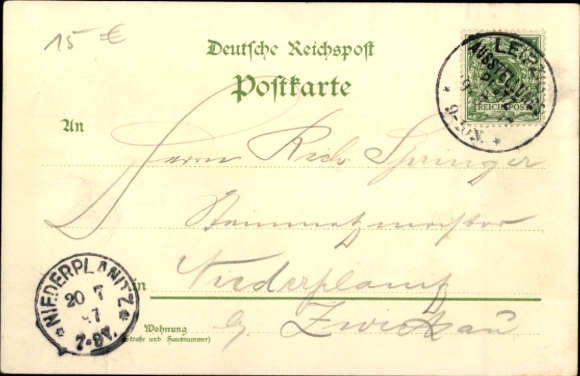 15 €
Deutsche Reichspost
Postkarte
LEIPZ
AUSSTELLUNG
9-10N.
REICHSPOST
An
Herrn Rich. Springer
Steinmetzmeister
in Niederplanitz
b/ Zwickau
Wohnung
(Straße und Hausnummer)
NIEDERPLANITZ
20 7
97
7-8V.